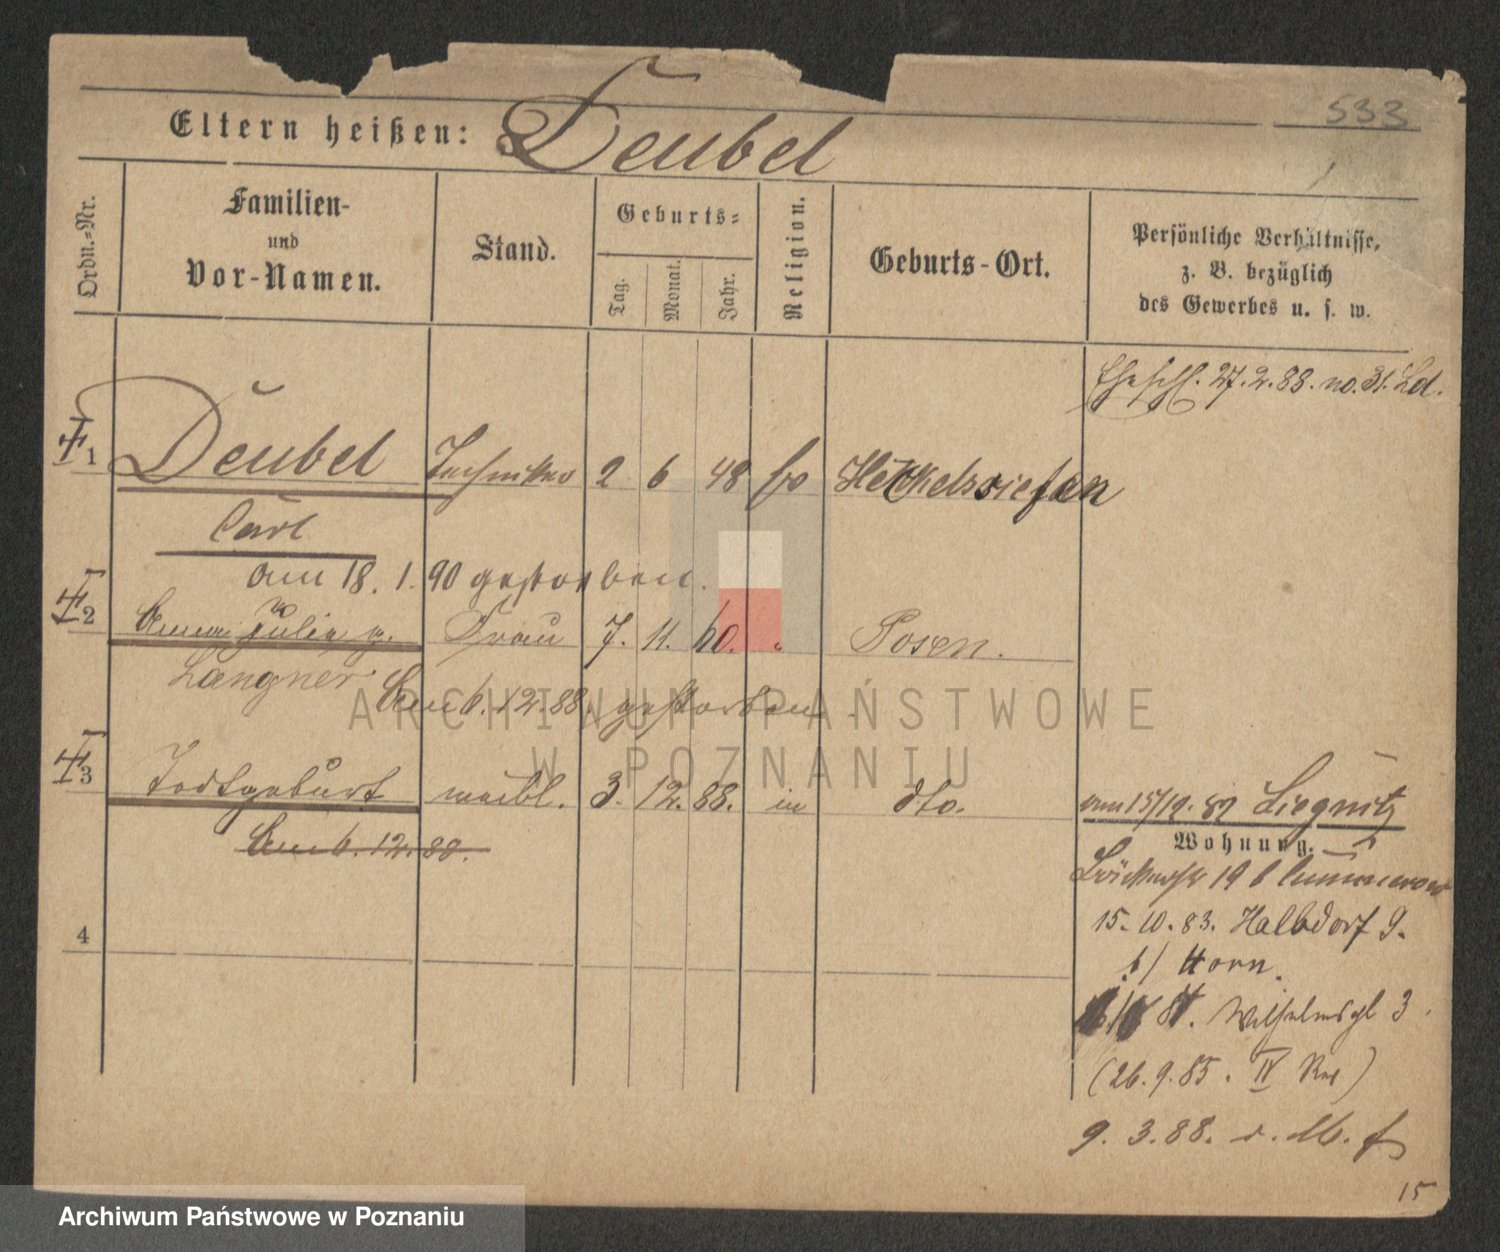 533
Eltern heißen: Deubel
Ordn.-Nr.
Familien-
und
Vor-Namen.
Stand.
Geburts-
Tag.
Monat.
Jahr.
Religion.
Geburts-Ort.
Persönliche Verhältnisse,
z. B. bezüglich
des Gewerbes u. s. w.
Eheschl. 27.2.88. no. 31. Ld.
1 Deubel Techniker 2 6 48
Carl
am 18. 1. 90 gestorben.
2 Anna Julie g. Frau 7. 11. 60. Posen.
Langner Am 6. 12. 88. gestorben
ARCHIWUM PAŃSTWOWE
W POZNANIU
3 Todtgeburt weibl. 3. 12. 88. in dto.
Am 6. 12. 88.
am 15/12. 82 Liegnitz
Wohnung.
19 b Cummerow
15. 10. 83. Halbdorf 9.
b/ Horn.
4
Wilhelmspl 3.
(26. 9. 85. IV)
9. 3. 88.
15
Archiwum Państwowe w Poznaniu